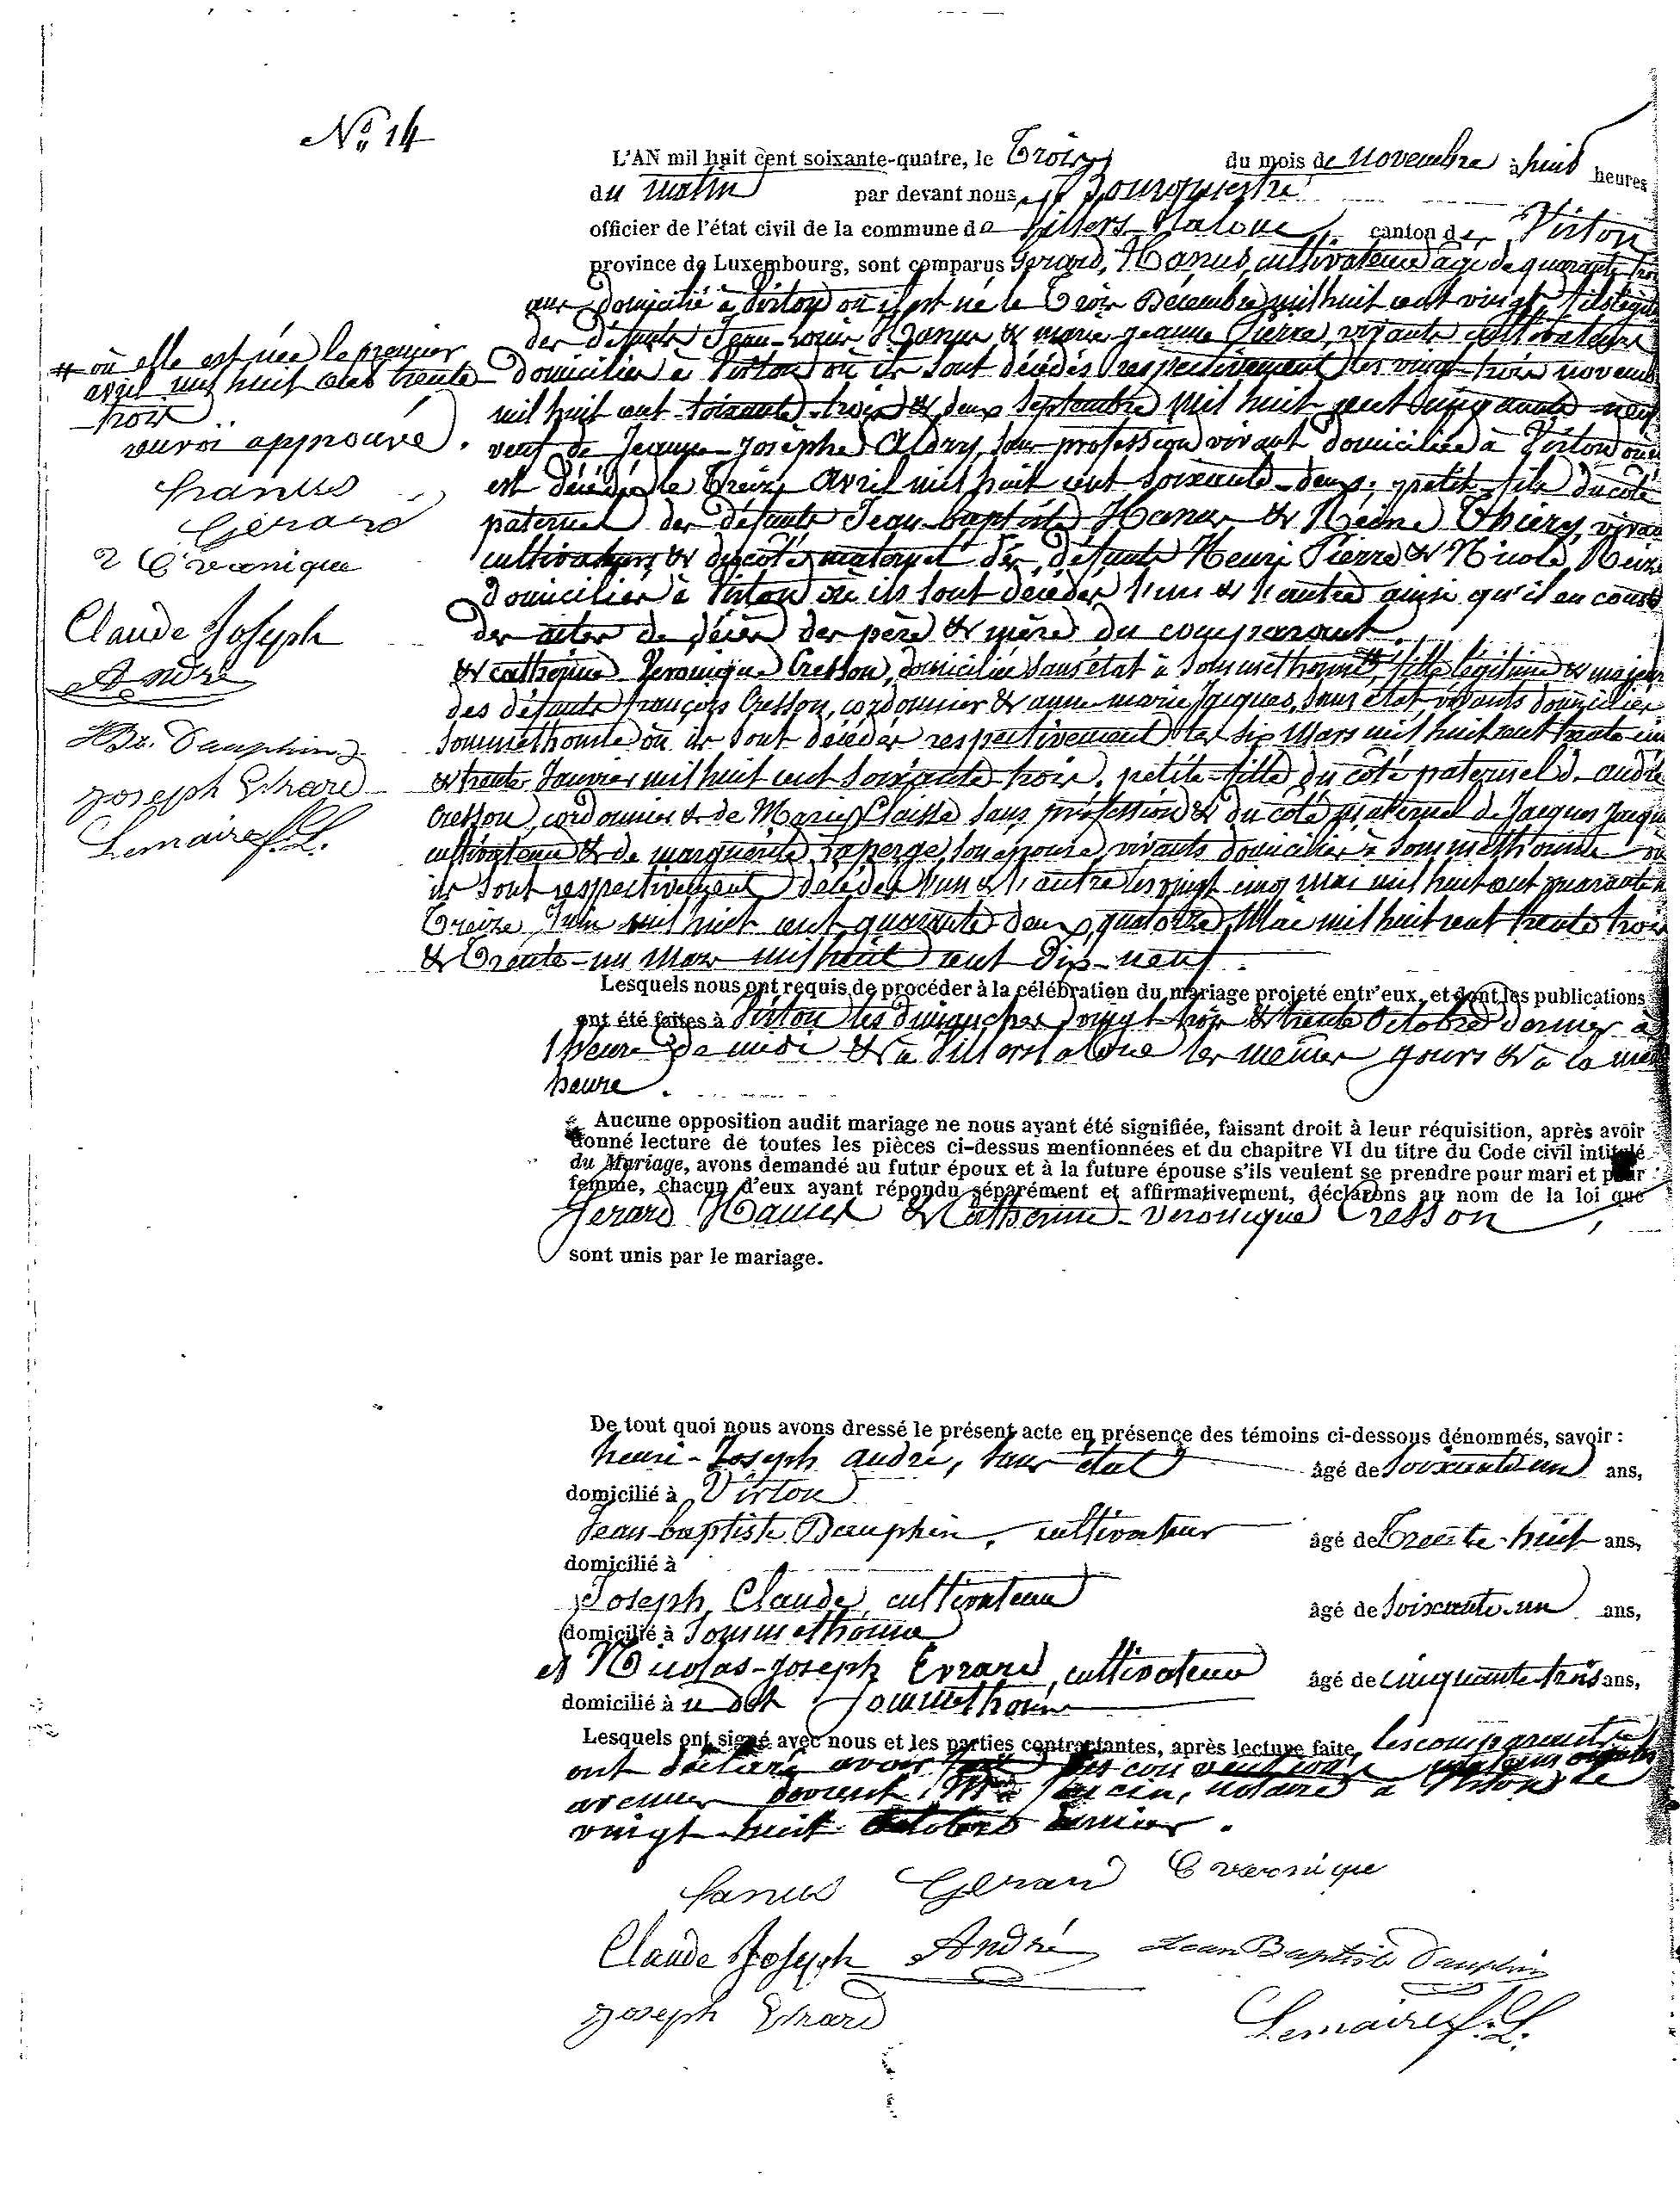 N° 14
L'AN mil huit cent soixante-quatre, le Trois du mois de novembre à huit heures
du matin par devant nous Bourgmestre
officier de l'état civil de la commune de Villers-Laloue canton de Virton
province de Luxembourg, sont comparus Gerard, Hanus, cultivateur agé de quarante trois
ans domicilié à Virton où il est né le Trois Décembre mil huit cent vingt, fils légit
des défunts Jean-Louis Hanus & marie jeanne Pierre, vivants cultivateurs
domiciliés à Virton où ils sont décédés respectivement les vingt-trois novemb
mil huit cent soixante-trois & deux Septembre mil huit cent cinquante-neuf
veuf de Jeanne-Josèphe Aldry, sans profession vivant domiciliée à Virton où
est décédée le Treize Avril mil huit cent soixante-deux; petit-fils du côté
paternel des défunts Jean-baptiste Hanus & Reine Thiery, vivan
cultivateurs & du côté maternel des défunts Henri Pierre & Nicole
domiciliés à Virton où ils sont décédés l'un & l'autre ainsi qu'il en const
des actes de décès des père & mère du comparant.
& catherine Veronique Cresson, domiciliée sans état à Sommethonne # fille légitime & majeur
des défunts françois Cresson, cordonnier & anne marie Jacques, sans état, vivants domiciliés
Sommethonne où ils sont décédés respectivement les six Mars mil huit cent trente
& trente Janvier mil huit cent soixante-trois. petite-fille du côté paternel d'andré
Cresson, cordonnier & de Marie Claisse sans profession & du côté maternel de Jacques Jacqu
cultivateur & de marguerite son épouse, vivants domiciliés à Sommethonne où
ils sont respectivement décédés l'un & l'autre les vingt cinq mai mil huit cent quarante
Treize Juin mil huit cent quarante deux, quatorze Mai mil huit cent trente trois
& Trente-un Mars mil huit cent Dix-neuf.
# où elle est née le premier
avril mil huit cent trente-
trois
renvoi approuvé.
hanus
Gérard
C Veronique
Claude Joseph
André
JBte. Dauphin
Joseph Evrard
Lemaire f.L.
Lesquels nous ont requis de procéder à la célébration du mariage projeté entr'eux, et dont les publications
ont été faites à Virton les dimanches vingt-trois & trente Octobre dernier à
l'heure de midi & à Villers-laloue les mêmes jours & à la mêm
heure.
Aucune opposition audit mariage ne nous ayant été signifiée, faisant droit à leur réquisition, après avoir
donné lecture de toutes les pièces ci-dessus mentionnées et du chapitre VI du titre du Code civil intitulé
du Mariage, avons demandé au futur époux et à la future épouse s'ils veulent se prendre pour mari et pour
femme, chacun d'eux ayant répondu séparément et affirmativement, déclarons au nom de la loi que
Gerard Hanus & Catherine-Veronique Cresson,
sont unis par le mariage.
De tout quoi nous avons dressé le présent acte en présence des témoins ci-dessous dénommés, savoir :
henri-Joseph andré, sans état âgé de soixante un ans,
domicilié à Virton
Jean-baptiste Dauphin, cultivateur âgé de Trente-huit ans,
domicilié à
Joseph Claude, cultivateur âgé de soixante-un ans,
domicilié à Sommethonne
et Nicolas-Joseph Evrard, cultivateur âgé de cinquante-trois ans,
domicilié à u dit Sommethonne
Lesquels ont signé avec nous et les parties contractantes, après lecture faite, les comparants
ont déclaré avoir fait des conventions
devant notaire à Virton le
vingt-huit Octobre dernier.
hanus Gérard C veronique
Claude Joseph André Jean Baptiste Dauphin
Joseph Evrard Lemaire f.L.